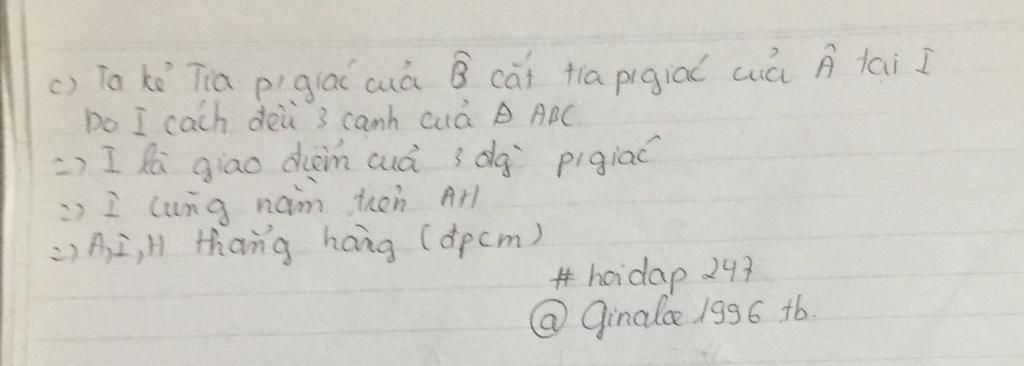 c) Ta kẻ Tia p/giác của B̂ cắt tia p/giác của Â tại I
Do I cách đều 3 cạnh của Δ ABC
=> I là giao điểm của 3 đg` p/giác
=> I cũng nằm trên AH
=> A, I, H thẳng hàng (đpcm)
# hoidap 247
@ Ginaloe 1996 tb.